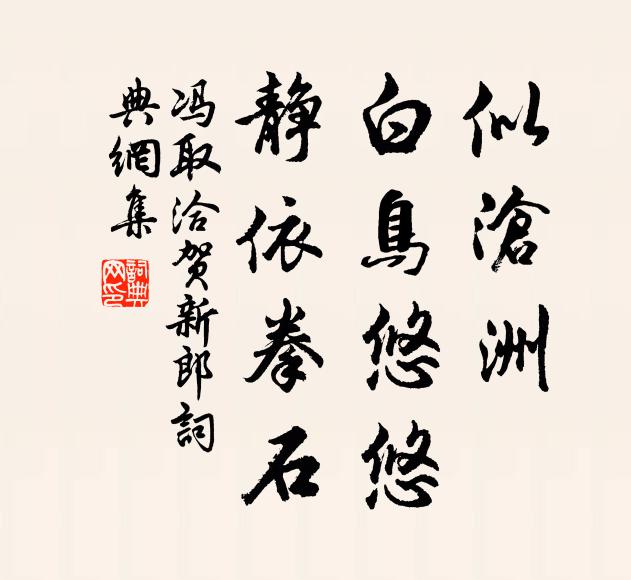 似滄洲
白鳥悠悠
静依拳石
冯取洽贺新郎詞
典網集
詞典
网印